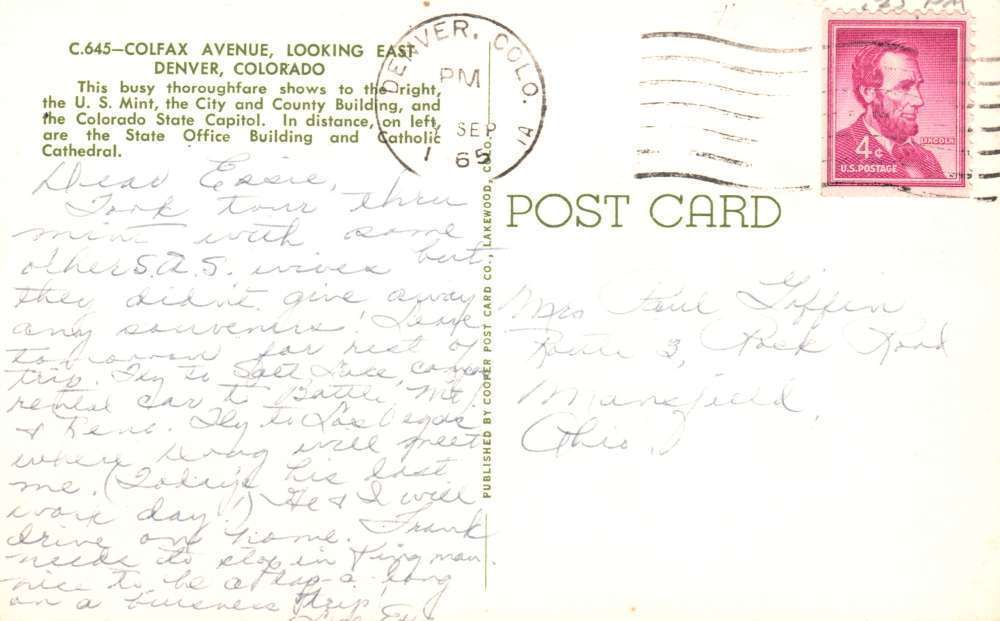 C.645—COLFAX AVENUE, LOOKING EAST
DENVER, COLORADO
This busy thoroughfare shows to the right,
the U. S. Mint, the City and County Building, and
the Colorado State Capitol. In distance, on left,
are the State Office Building and Catholic
Cathedral.
DENVER, COLO.
PM
SEP
1 65
1A
LINCOLN
4¢
U.S. POSTAGE
Dear Essie,
Took tour thru
mint with some
other S.A.S. wives but
they didn't give away
any souvenirs! Leave
tomorrow for rest of
trip. Fly to Salt Lake,
rental car to Battle Mt.
& Reno. Fly to Las Vegas
where Doug will meet
me. (Today's his last
work day!) He & I will
drive on home. Frank
needs to stop in Kingman.
nice to be a tag-a-long
on a business trip,
PUBLISHED BY COOPER POST CARD CO., LAKEWOOD, COLO.
POST CARD
Mrs Paul Giffin
Route 3, Rock Road
Mansfield,
Ohio,